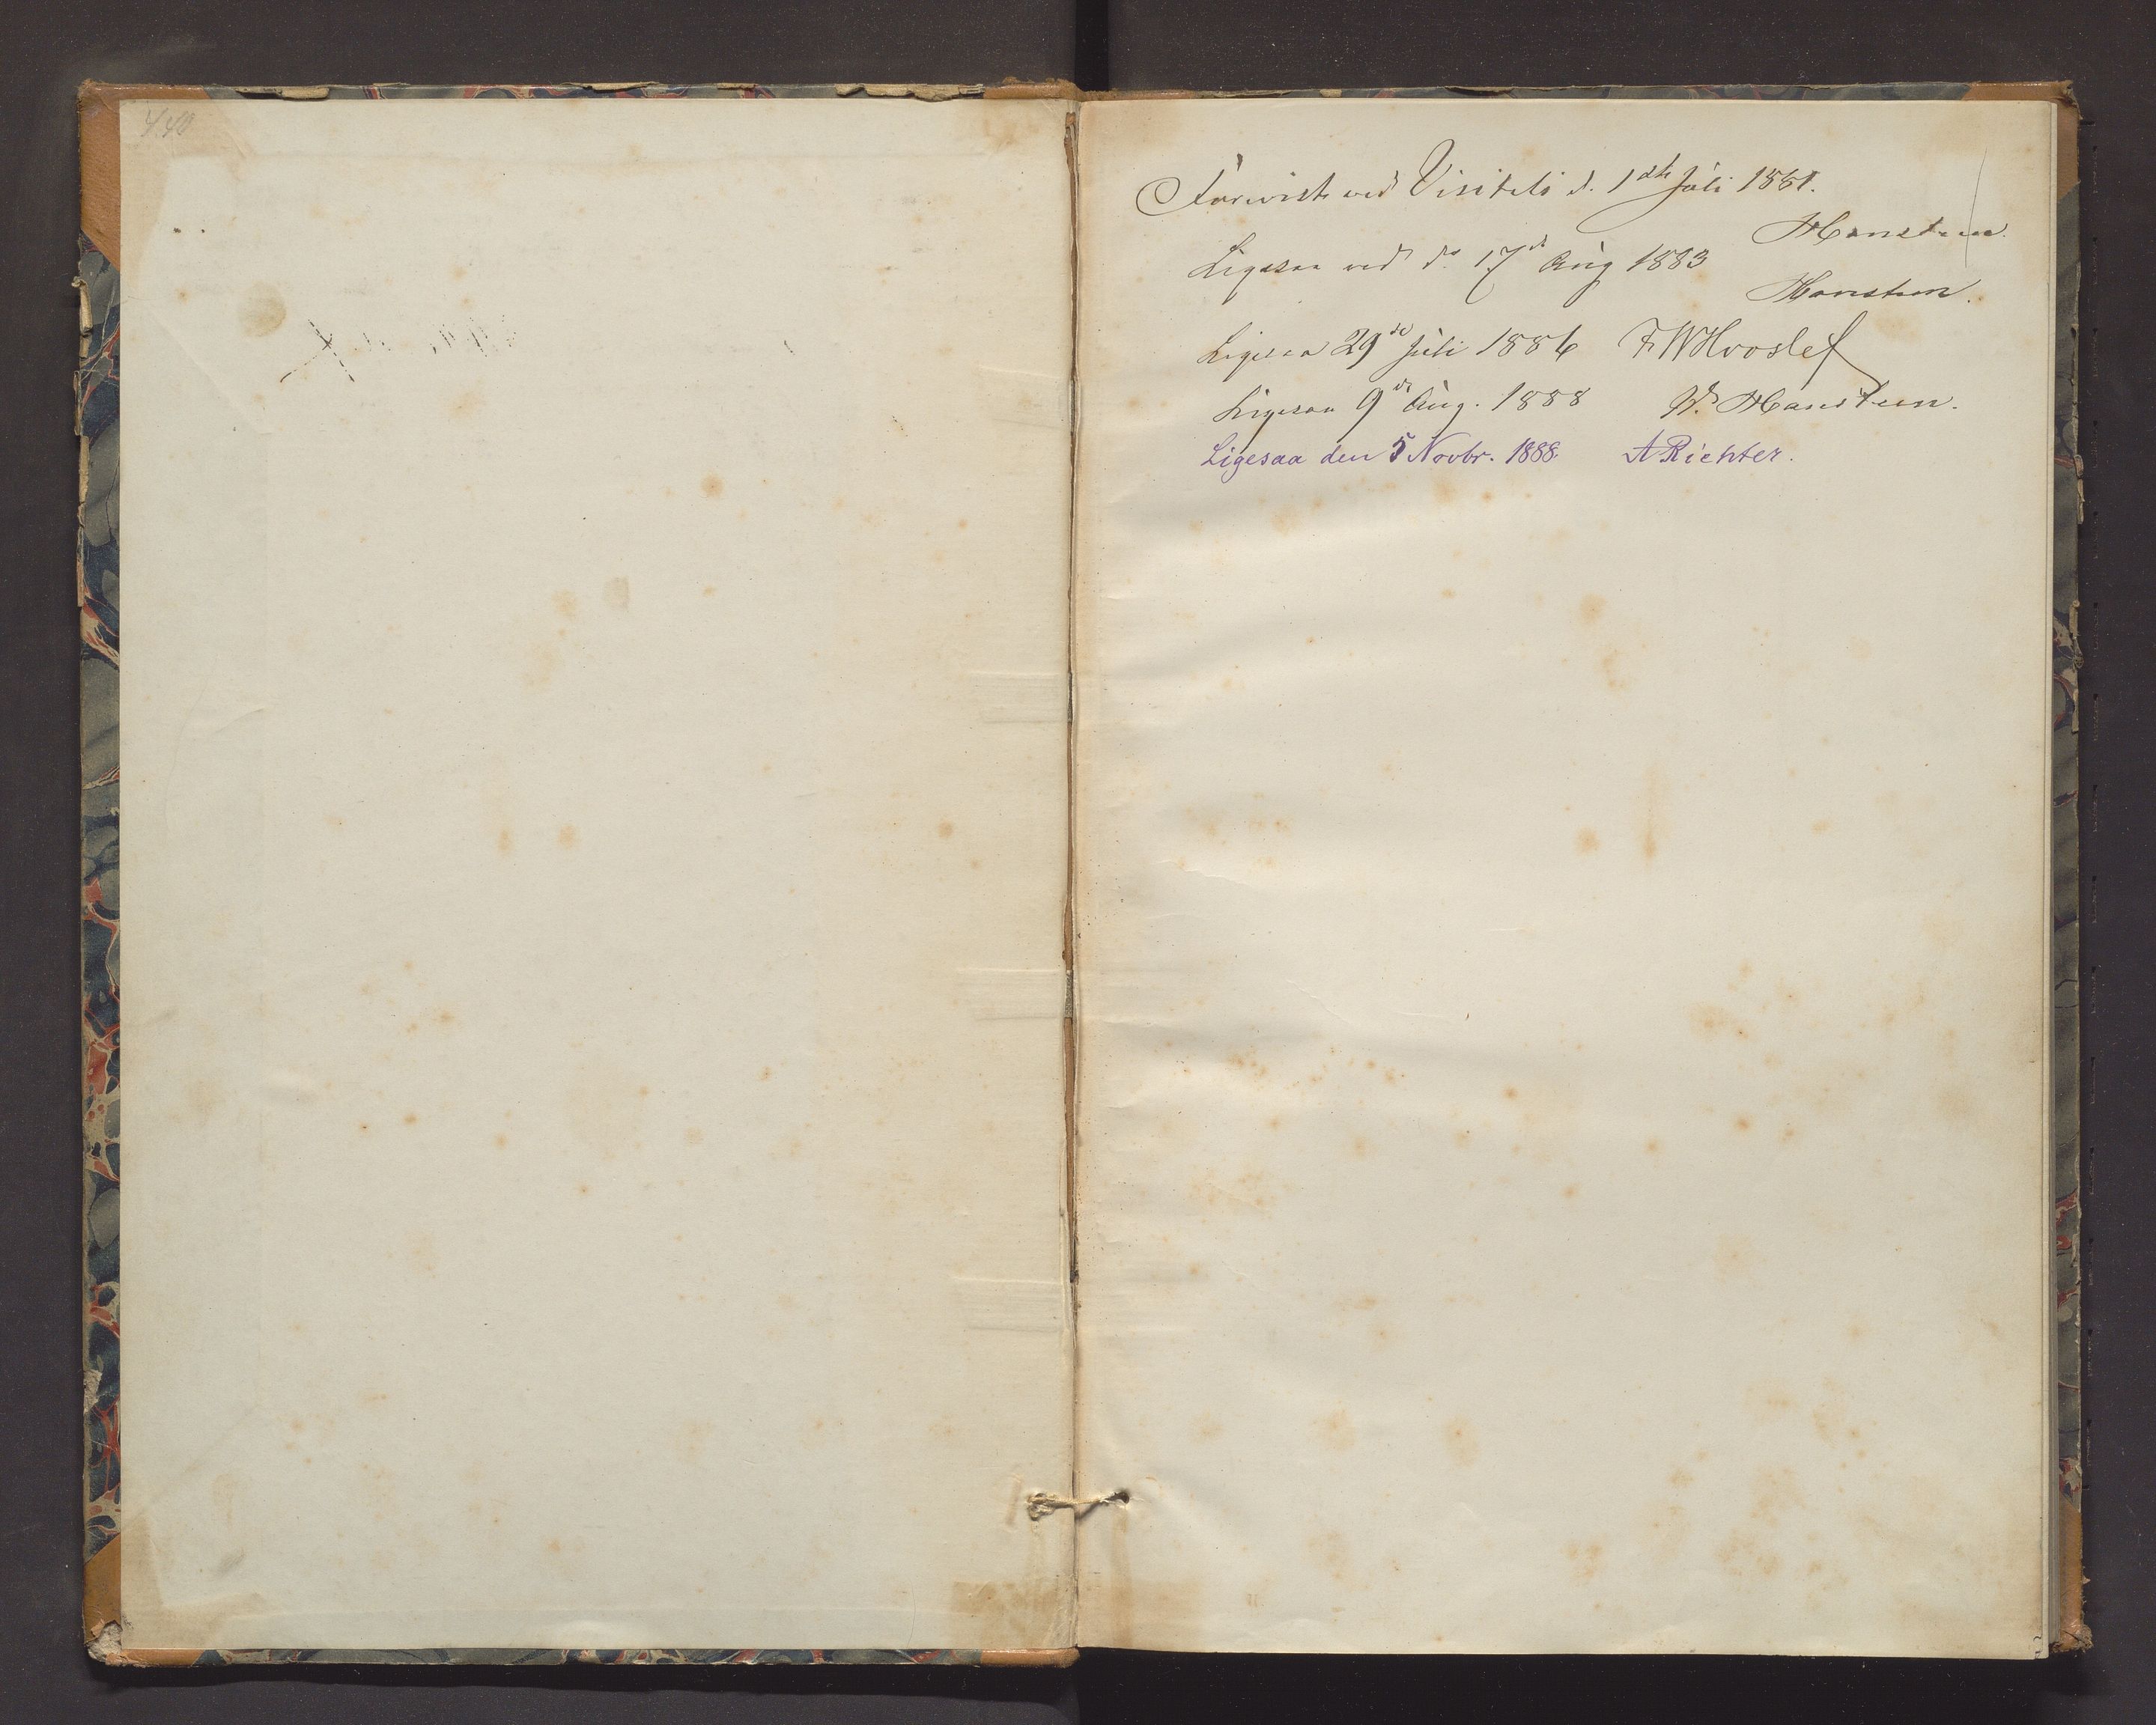 4.40
Forevist ved Visitats d. 1ste Juli 1881.
Hansteen.
Ligesaa ved do 17de Aug 1883
Hansteen.
Ligesaa 29de Juli 1886 F W Hvoslef
Ligesaa 9de Aug. 1888 W. Hansteen.
Ligesaa den 5 Novbr. 1888. A Richter.